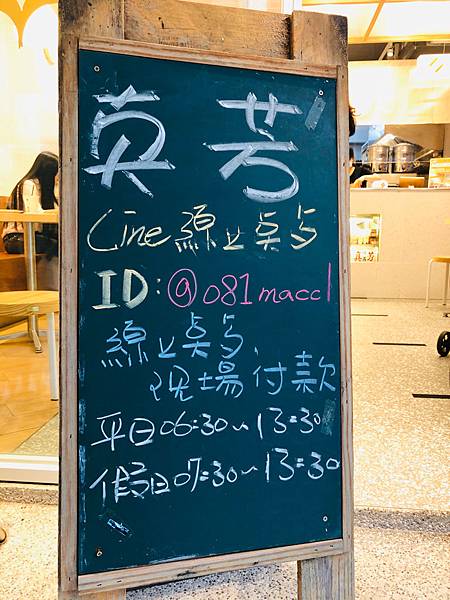 真芳
Line 線上奌歺
ID:@081maccl
線上奌歺、
現場付款
平日06:30~13:30
假日07:30~13:30